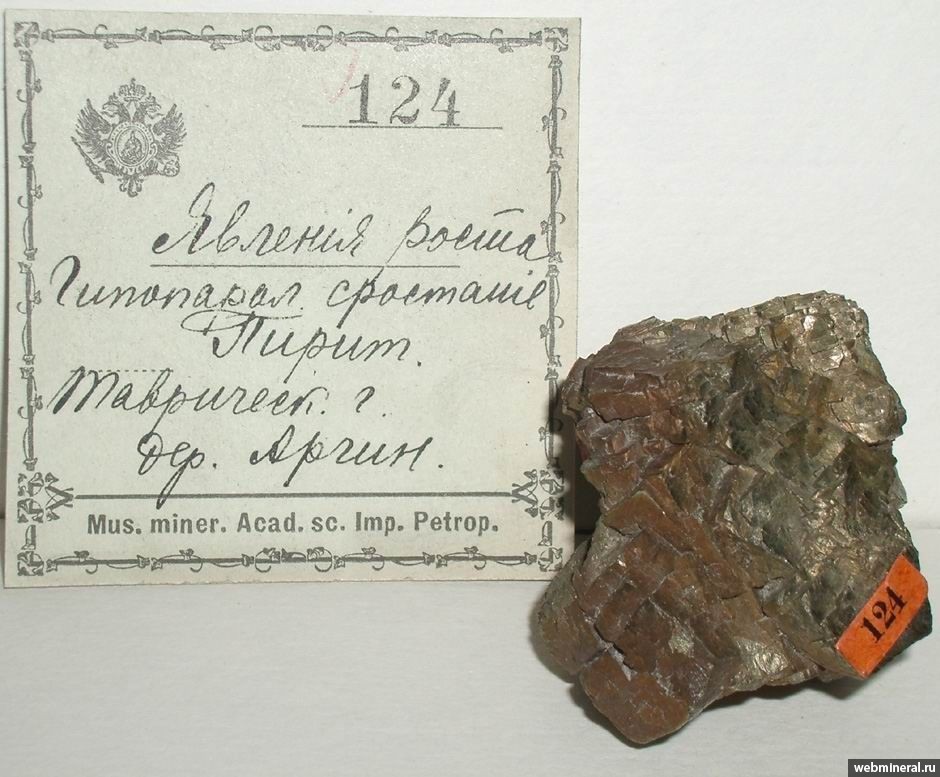 124
Явленія роста
Гипопарал сростаніе
Пирит.
Таврическ. г.
дер. Аргин.
Mus. miner. Acad. sc. Imp. Petrop.
124
webmineral.ru